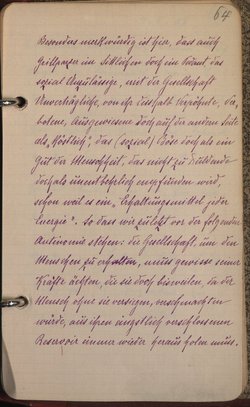 64
Besonders merkwürdig ist hier, dass auch
Grillparzer im Schlafen doch ein Kraut das
sozial Unzulässige, mit der Gesellschaft
Unverträgliche, von ihr deshalb Verpönte, Ver-
botene, Ausgewiesene doch auf der andern Seite
als „Köstlich", das (sozial) Böse doch als ein
Gut der Menschheit, das nicht zu Duldende
doch als unentbehrlich empfunden wird,
schon weil es ein „Erhaltungsmittel jeder
Energie". So dass wir zuletzt vor der folgenden
Antinomie stehen: die Gesellschaft, um den
Menschen zu erhalten, muss gewisse seiner
Kräfte ächten, die sie doch bisweilen, da der
Mensch ohne sie versiegen, verschmachten
würde, aus ihrem ängstlich verschlossenen
Reservoir immer wieder heraus holen muss.